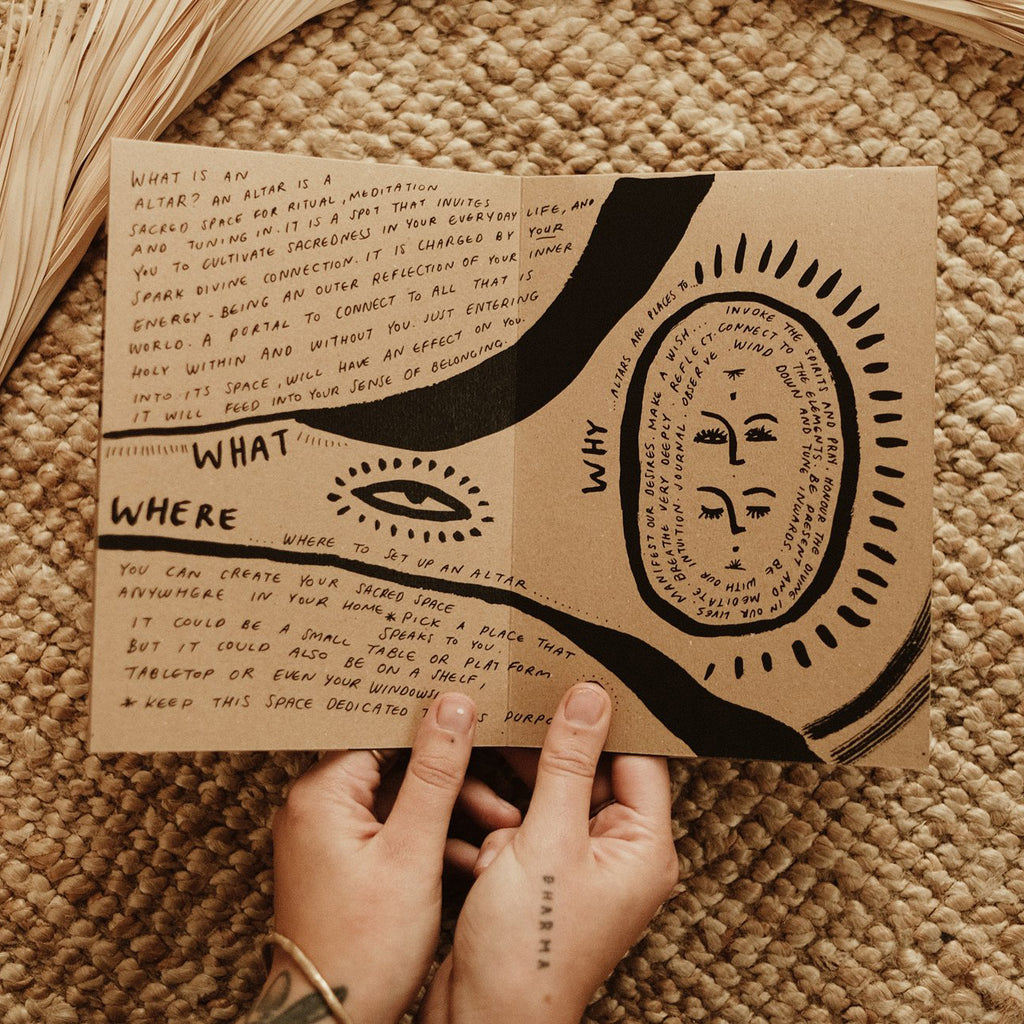 WHAT IS AN
ALTAR? AN ALTAR IS A
SACRED SPACE FOR RITUAL, MEDITATION
AND TUNING IN. IT IS A SPOT THAT INVITES
YOU TO CULTIVATE SACREDNESS IN YOUR EVERYDAY LIFE, AND
SPARK DIVINE CONNECTION. IT IS CHARGED BY YOUR
ENERGY - BEING AN OUTER REFLECTION OF YOUR INNER
WORLD. A PORTAL TO CONNECT TO ALL THAT IS
HOLY WITHIN AND WITHOUT YOU. JUST ENTERING
INTO ITS SPACE, WILL HAVE AN EFFECT ON YOU.
IT WILL FEED INTO YOUR SENSE OF BELONGING.
WHAT
WHERE
....WHERE TO SET UP AN ALTAR
YOU CAN CREATE YOUR SACRED SPACE
ANYWHERE IN YOUR HOME * PICK A PLACE THAT
SPEAKS TO YOU.
IT COULD BE A SMALL TABLE OR PLATFORM
BUT IT COULD ALSO BE ON A SHELF,
TABLETOP OR EVEN YOUR
* KEEP THIS SPACE DEDICATED
WHY
...ALTARS ARE PLACES TO...
INVOKE THE SPIRITS AND PRAY. HONOUR THE DIVINE IN OUR LIVES
MANIFEST OUR DESIRES. MAKE A WISH...
CONNECT TO THE ELEMENTS. BE PRESENT AND MEDITATE WITH OUR INTUITION. JOURNAL. OBSERVE
BREATHE VERY DEEPLY. REFLECT.
WIND DOWN AND TUNE INWARDS. BE
DHARMA